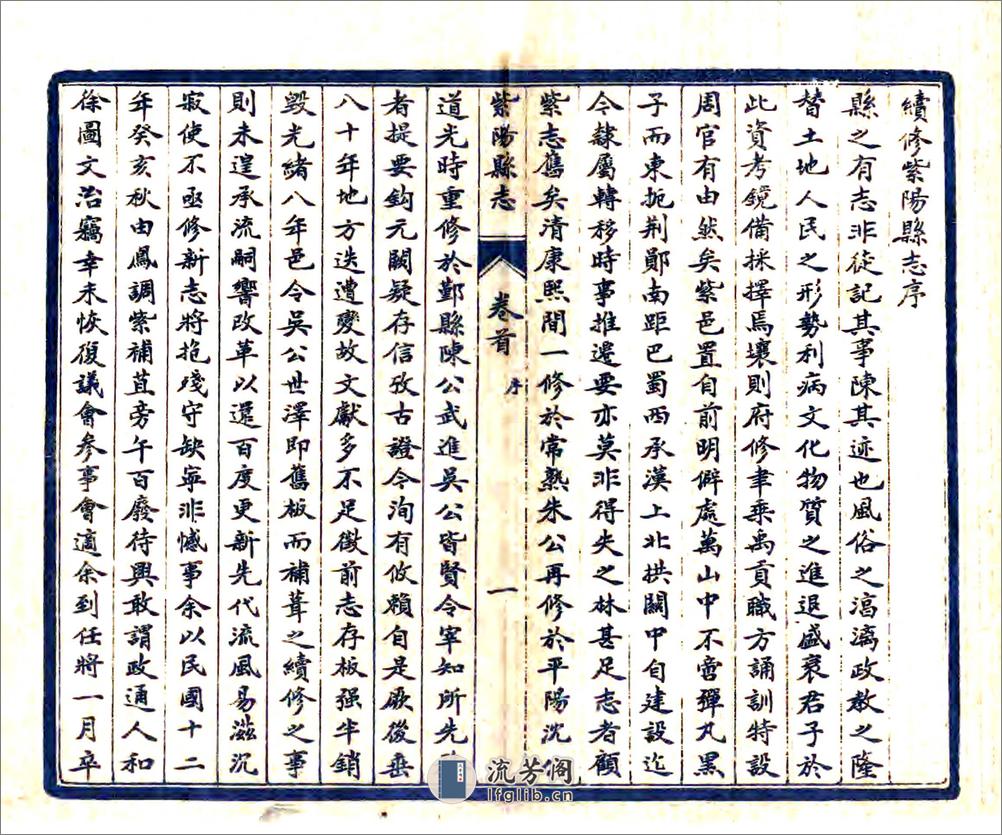 續修紫陽縣志序
縣之有志非徒記其事陳其迹也風俗之漓漓政教之隆
替土地人民之形勢利病文化物質之進退盛衰君子於
此資考鏡備採擇焉壤則府修聿乘禹貢職方誦訓特設
周官有由然矣紫邑置自前明僻處萬山中不啻彈丸黑
子而東扼荆鄖南距巴蜀西承漢上北拱關中自建設迄
今隸屬轉移時事推遷要亦莫非得失之林甚足志者顧
紫志舊矣清康熙間一修於常熟朱公再修於平陽沈
紫陽縣志
卷首
序
一
道光時重修於鄞縣陳公武進吳公皆賢令宰知所先
者提要鈎元闕疑存信攷古證今洵有攸賴自是厥後垂
八十年地方迭遭變故文獻多不足徵前志存板强半銷
毀光緒八年邑令吳公世澤即舊板而補葺之續修之事
則未遑承流嗣響改革以還百度更新先代流風易滋沉
寂使不亟修新志將抱殘守缺寧非憾事余以民國十二
年癸亥秋由鳳調紫補苴旁午百廢待興敢謂政通人和
徐圖文治竊幸未恢復議會參事會適余到任將一月卒
流芳閣
lfglib.cn